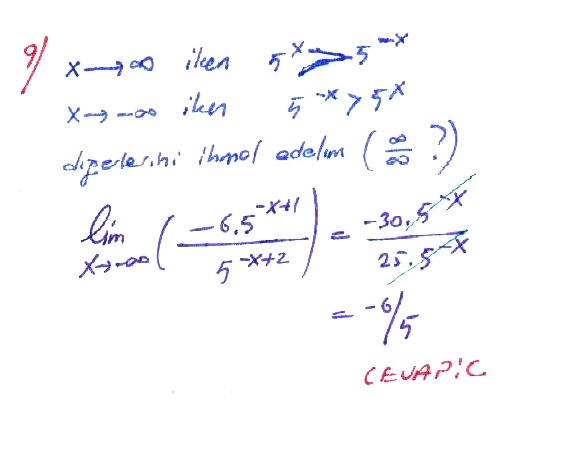 9/ x→∞ iken 5^x > 5^-x
x→-∞ iken 5^-x > 5^x
diğerlerini ihmal edelim (∞/∞ ?)
lim x→-∞ (-6.5^-x+1 / 5^-x+2) = -30.5^-x / 25.5^-x
= -6/5
CEVAP:C